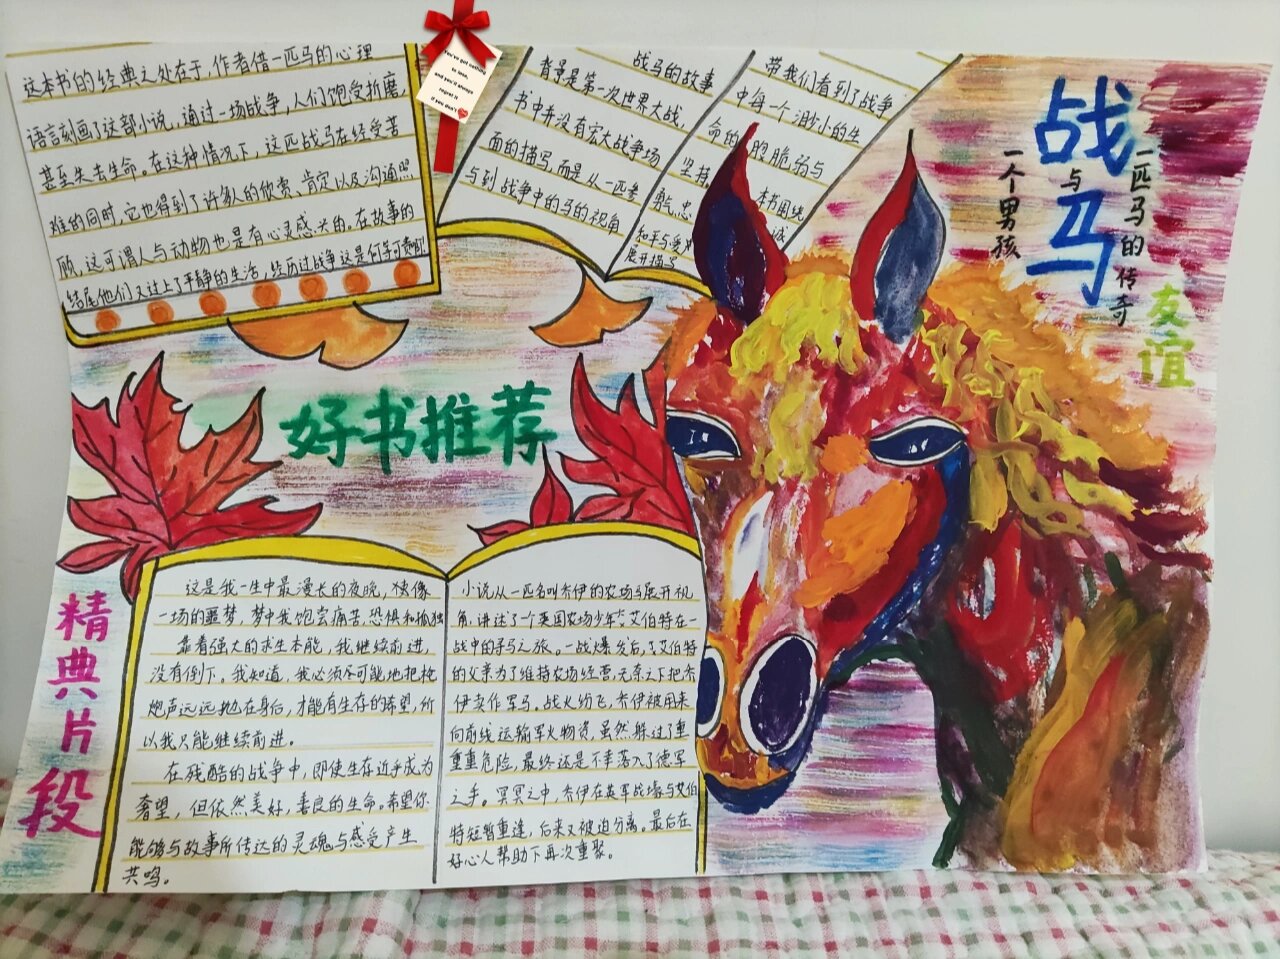 这本书的经典之处在于,作者借一匹马的心理
语言刻画了这部小说,通过一场战争,人们饱受折磨,
甚至失去生命。在这种情况下,这匹战马在经受苦
难的同时,它也得到了许多人的欣赏、肯定以及沟通照
顾,这可谓人与动物也是有心灵感
结尾他们又过上了平静的生活,经历过战争这是何等可贵啊!
You've got nothing
to lose,
and you'd always
regret it
if you don't
战马的故事
背景是第一次世界大战,
书中并没有宏大战争场
面的描写,而是从一匹参
与到战争中的马的视角
带我们看到了战争
中每一个渺小的生
命的
脆弱与
坚持。
本书围绕
忠
诚
和平与爱
展开描写
战
与
马
一个男孩
一匹马的传奇
友谊
好书推荐
精典片段
这是我一生中最漫长的夜晚,独像
一场的噩梦,梦中我饱尝痛苦、恐惧和孤独
靠着强大的求生本能,我继续前进,
没有倒下。我知道,我必须尽可能地把枪
炮声远远抛在身后,才能有生存的希望,所
以我只能继续前进。
在残酷的战争中,即使生存近乎成为
奢望,但依然美好,善良的生命。希望你
能够与故事所传达的灵魂与感受产生
共鸣。
小说从一匹名叫乔伊的农场马展开视
角,讲述了个英国农场少年艾伯特在一
战中的寻马之旅。一战爆发后,艾伯特
的父亲为了维持农场经营,无奈之下把乔
伊卖作军马,战火纷飞,乔伊被用来
向前线运输军火物资,虽然躲过了重
重危险,最终还是不幸落入了德军
之手。冥冥之中,乔伊在英军战壕与艾伯
特短暂重逢,后来又被迫分离。最后在
好心人帮助下再次重聚。